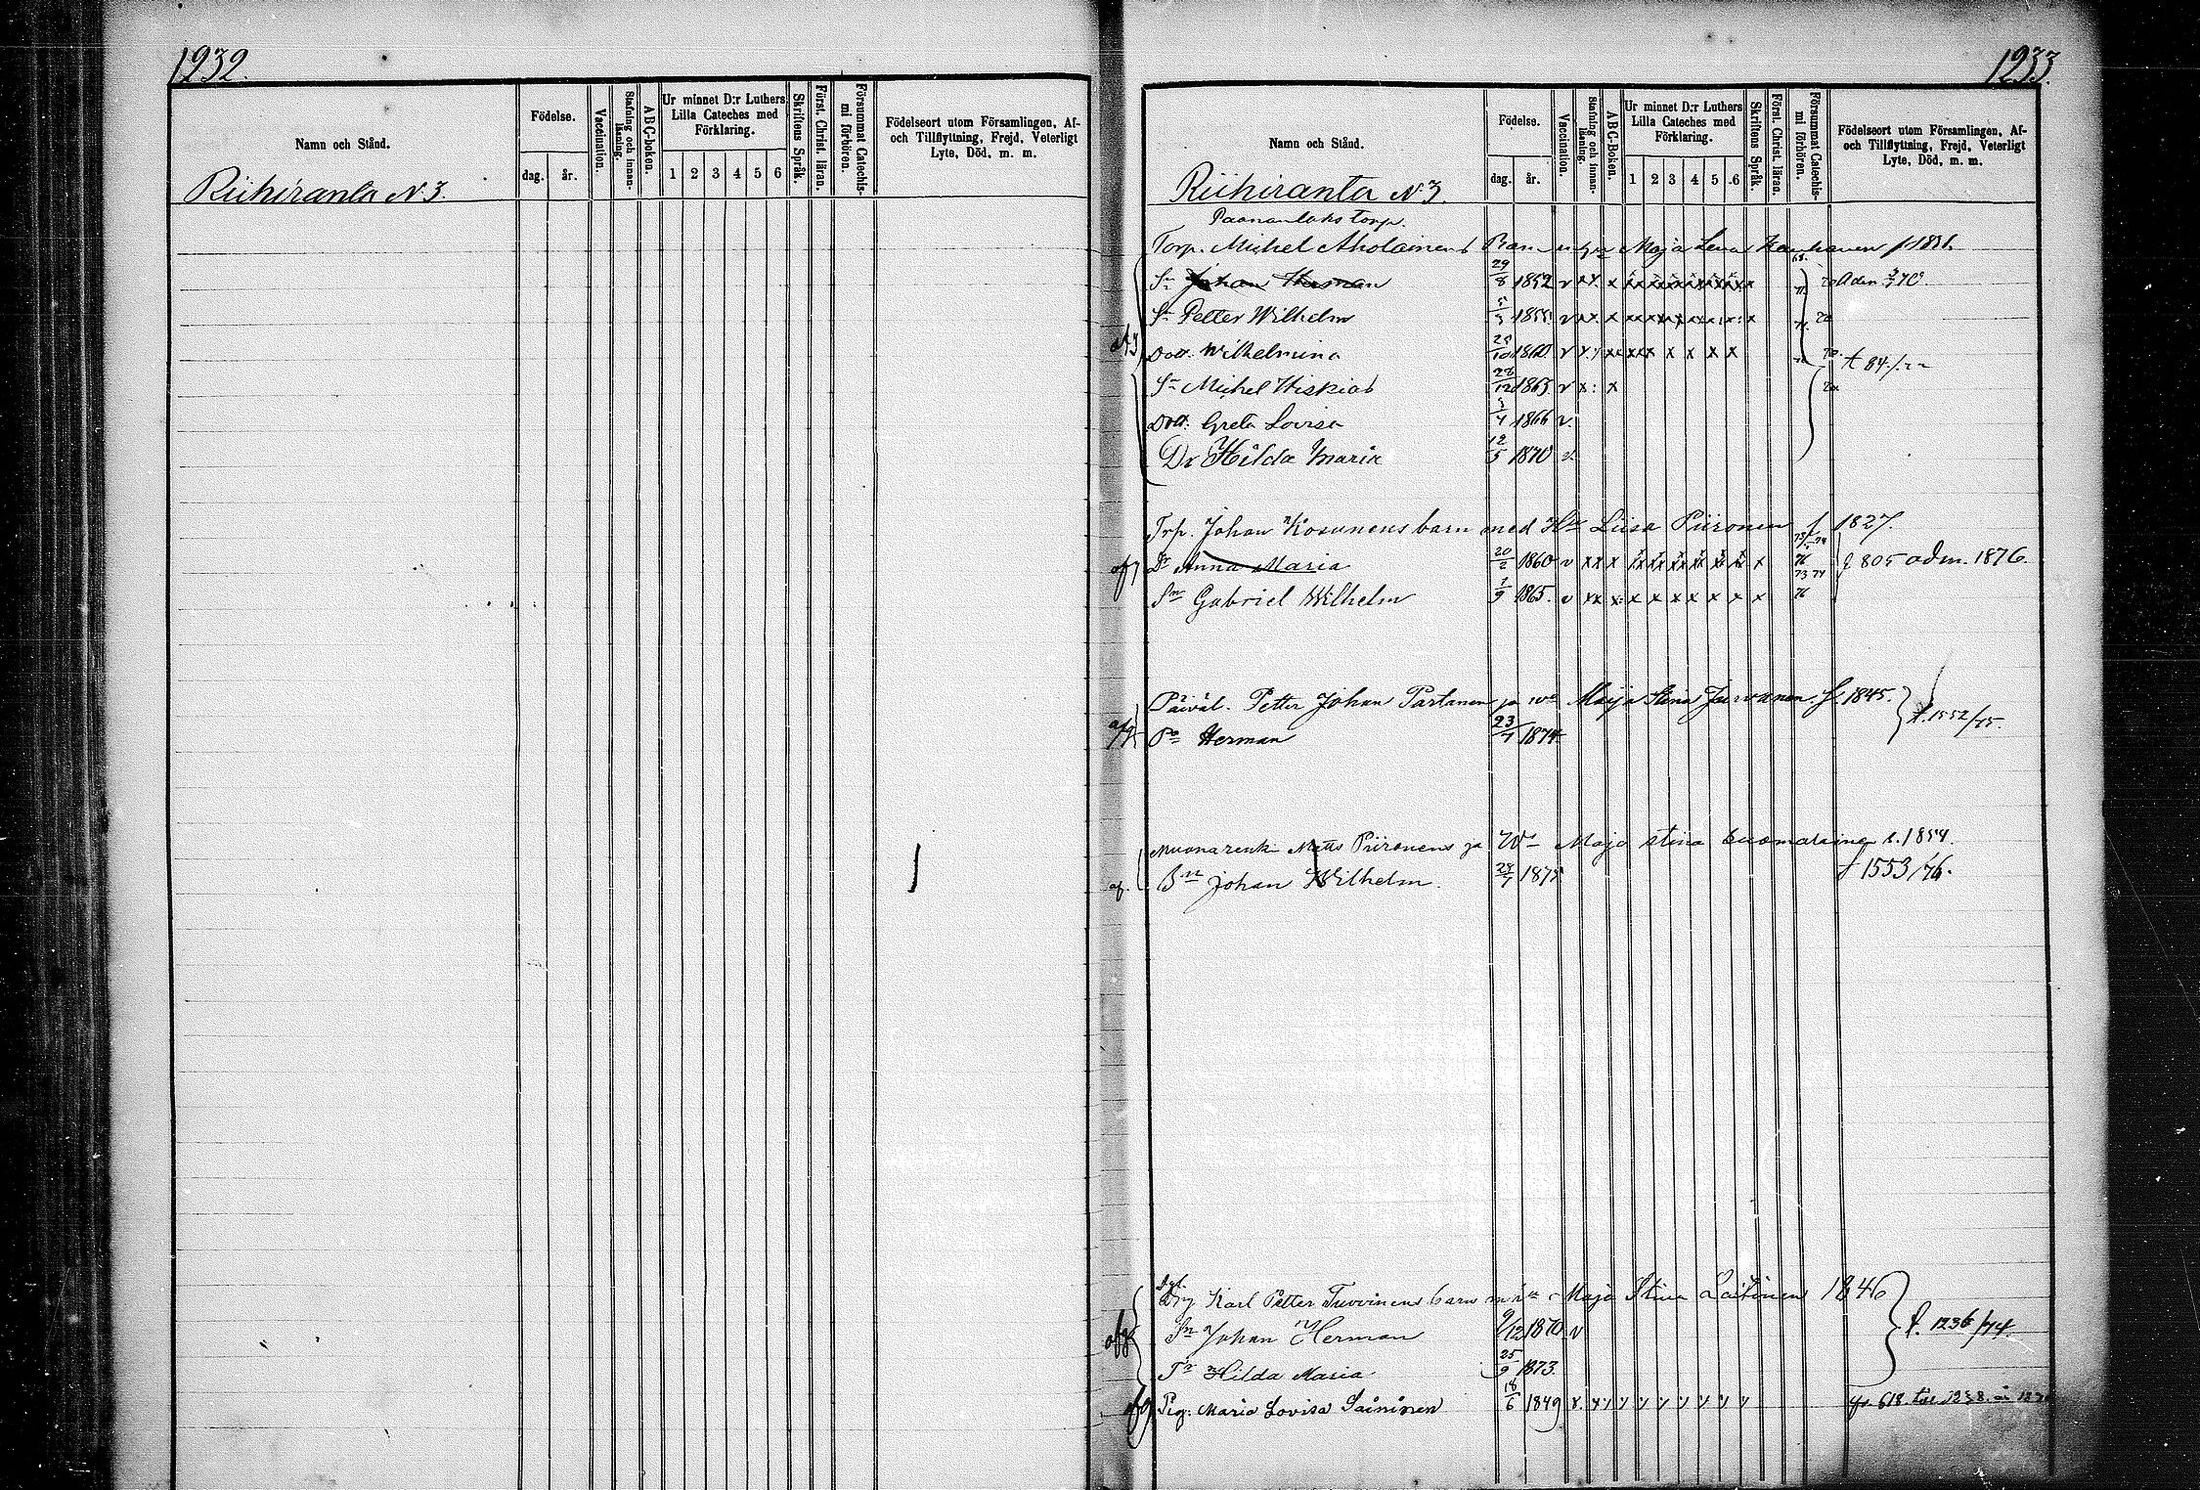 1232.
Namn och Stånd.
Födelse.
dag. år.
Vaccination.
Stafning och innanläsning.
ABC-boken.
Ur minnet D:r Luthers Lilla Cateches med Förklaring.
1 2 3 4 5 6
Skriftens Språk.
Först. Christ. läran.
Försummat Catechismi förhören.
Födelseort utom Församlingen, Af- och Tillflyttning, Frejd, Veterligt Lyte, Död, m. m.
Riihiranta N. 3.
1233.
Namn och Stånd.
Födelse.
dag. år.
Vaccination.
Stafning och innanläsning.
ABC-Boken.
Ur minnet D:r Luthers Lilla Cateches med Förklaring.
1 2 3 4 5 6
Skriftens Språk.
Först. Christ. läran.
Försummat Catechismi förhören.
Födelseort utom Församlingen, Af- och Tillflyttning, Frejd, Veterligt Lyte, Död, m. m.
Riihiranta N. 3.
torp.
Torp. Michel Aholainens Barn Maja Lena
Sn Johan Herman 29/8 1852 v
Sn Petter Wilhelm 1855 v
Dotr. Wilhelmina 1860 v
Sn Michel Hiskias 28/12 1863 v
Dotr: Greta Lovisa 1866 v.
Dr Hilda Maria 12/5 1870 v.
Trp. Johan Kosunens barn med Hu Liisa Piironen f. 1827.
Dr Anna Maria 20/2 1860 v x x x f. 805 adm. 1876.
Sn Gabriel Wilhelm 1/9 1865. v
Päivät. Petter Johan Partanen ja wo Maija Stina f. 1845.
Po Herman 23/7 1874 f. 1552/75.
Muonarenk. Matts Piironens ja Maja Stina f. 1854.
Johan Wilhelm. 1875 f 1553/76.
Karl Petter barn Maja Stina Laitinen 1846
Sn Johan Herman 9/12 1870 v f. 1236/74.
Hilda Maria 25/9 1873.
Pig. Maria Lovisa 18/6 1849